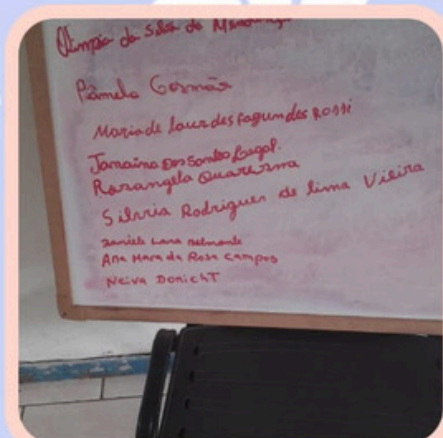 Olimpia da Silva de Mendonça
Pâmela Gusmão
Maria de Lourdes Fagundes Rossi
Janaina Dos Santos Legal.
Rosangela Quaresma
Silvia Rodrigues de Lima Vieira
Daniela Lana Belmonte
Ana Mara da Rosa Campos
Neiva Donicht